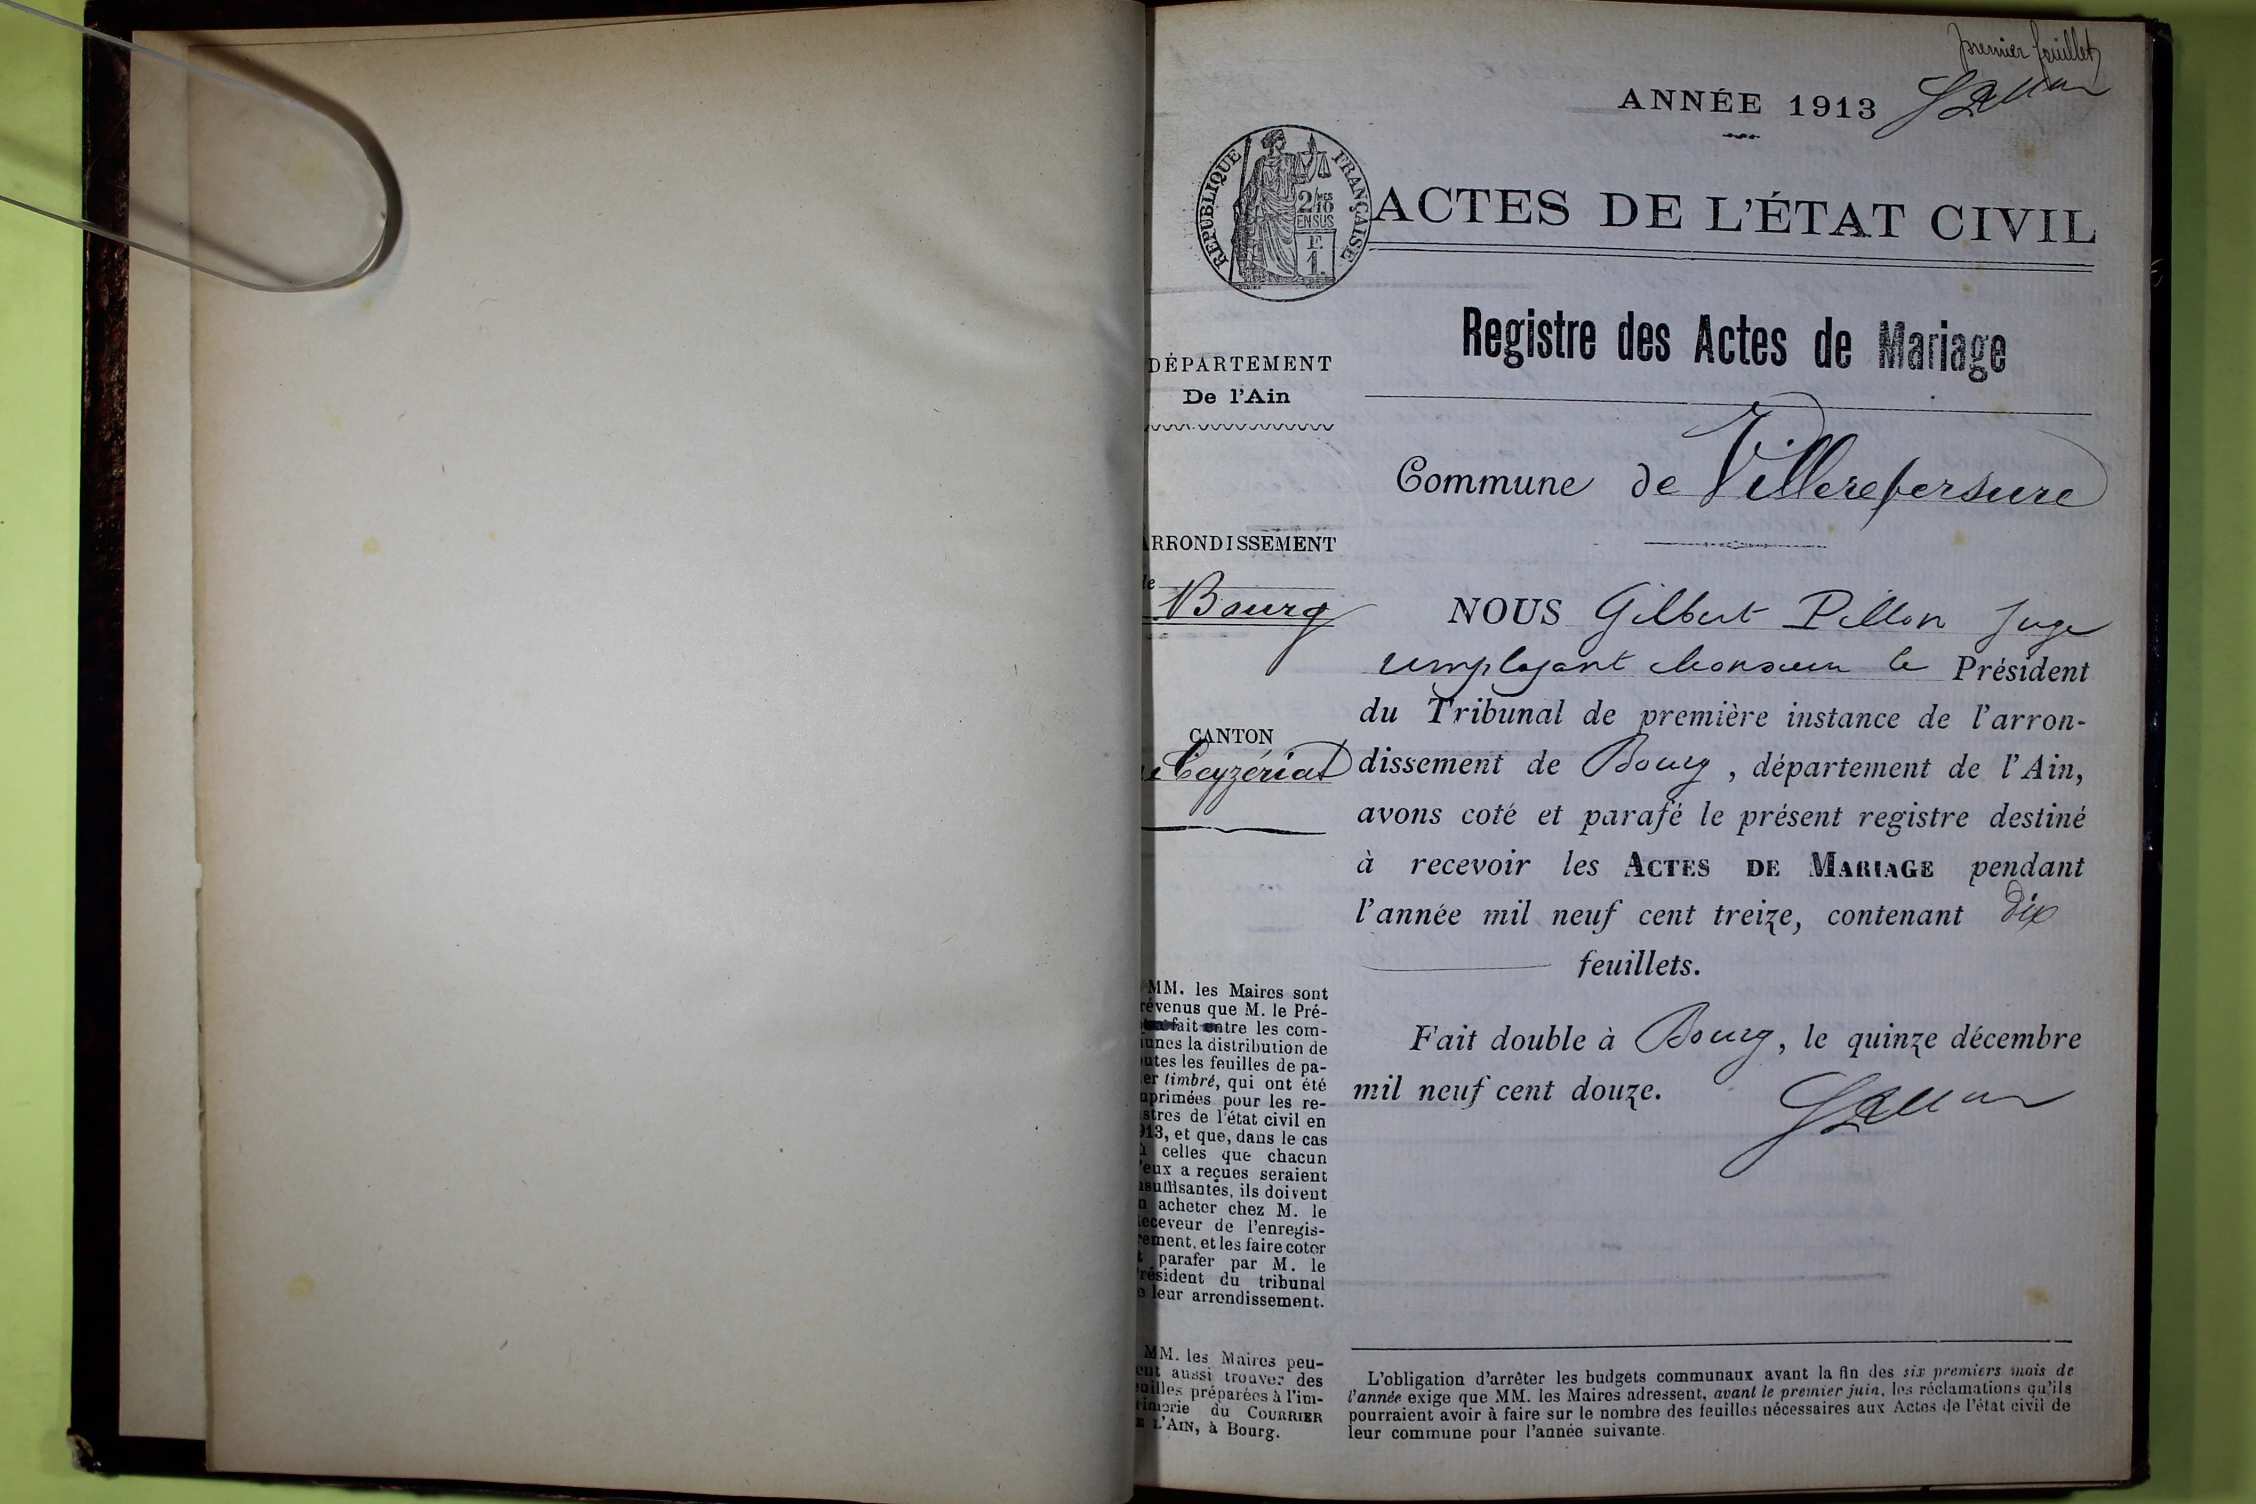 premier feuillet
ANNÉE 1913
RÉPUBLIQUE FRANÇAISE
2/10MES
EN SUS
F.
1.
ACTES DE L'ÉTAT CIVIL
Registre des Actes de Mariage
DÉPARTEMENT
De l'Ain
Commune de Villereversure
ARRONDISSEMENT
de
Bourg
CANTON
de Ceyzériat
NOUS Gilbert Pillon Juge
remplaçant Monsieur le Président
du Tribunal de première instance de l'arron-
dissement de Bourg, département de l'Ain,
avons coté et parafé le présent registre destiné
à recevoir les ACTES DE MARIAGE pendant
l'année mil neuf cent treize, contenant dix
feuillets.
Fait double à Bourg, le quinze décembre
mil neuf cent douze.
MM. les Maires sont
révenus que M. le Pré-
fait entre les com-
unes la distribution de
outes les feuilles de pa-
er timbré, qui ont été
primées pour les re-
stres de l'état civil en
913, et que, dans le cas
ù celles que chacun
'eux a reçues seraient
nsuffisantes, ils doivent
n acheter chez M. le
eceveur de l'enregis-
rement, et les faire coter
t parafer par M. le
résident du tribunal
e leur arrondissement.
MM. les Maires peu-
ent aussi trouver des
euilles préparées à l'im-
rimerie du COURRIER
E L'AIN, à Bourg.
L'obligation d'arrêter les budgets communaux avant la fin des six premiers mois de
l'année exige que MM. les Maires adressent, avant le premier juin, les réclamations qu'ils
pourraient avoir à faire sur le nombre des feuilles nécessaires aux Actes de l'état civil de
leur commune pour l'année suivante.